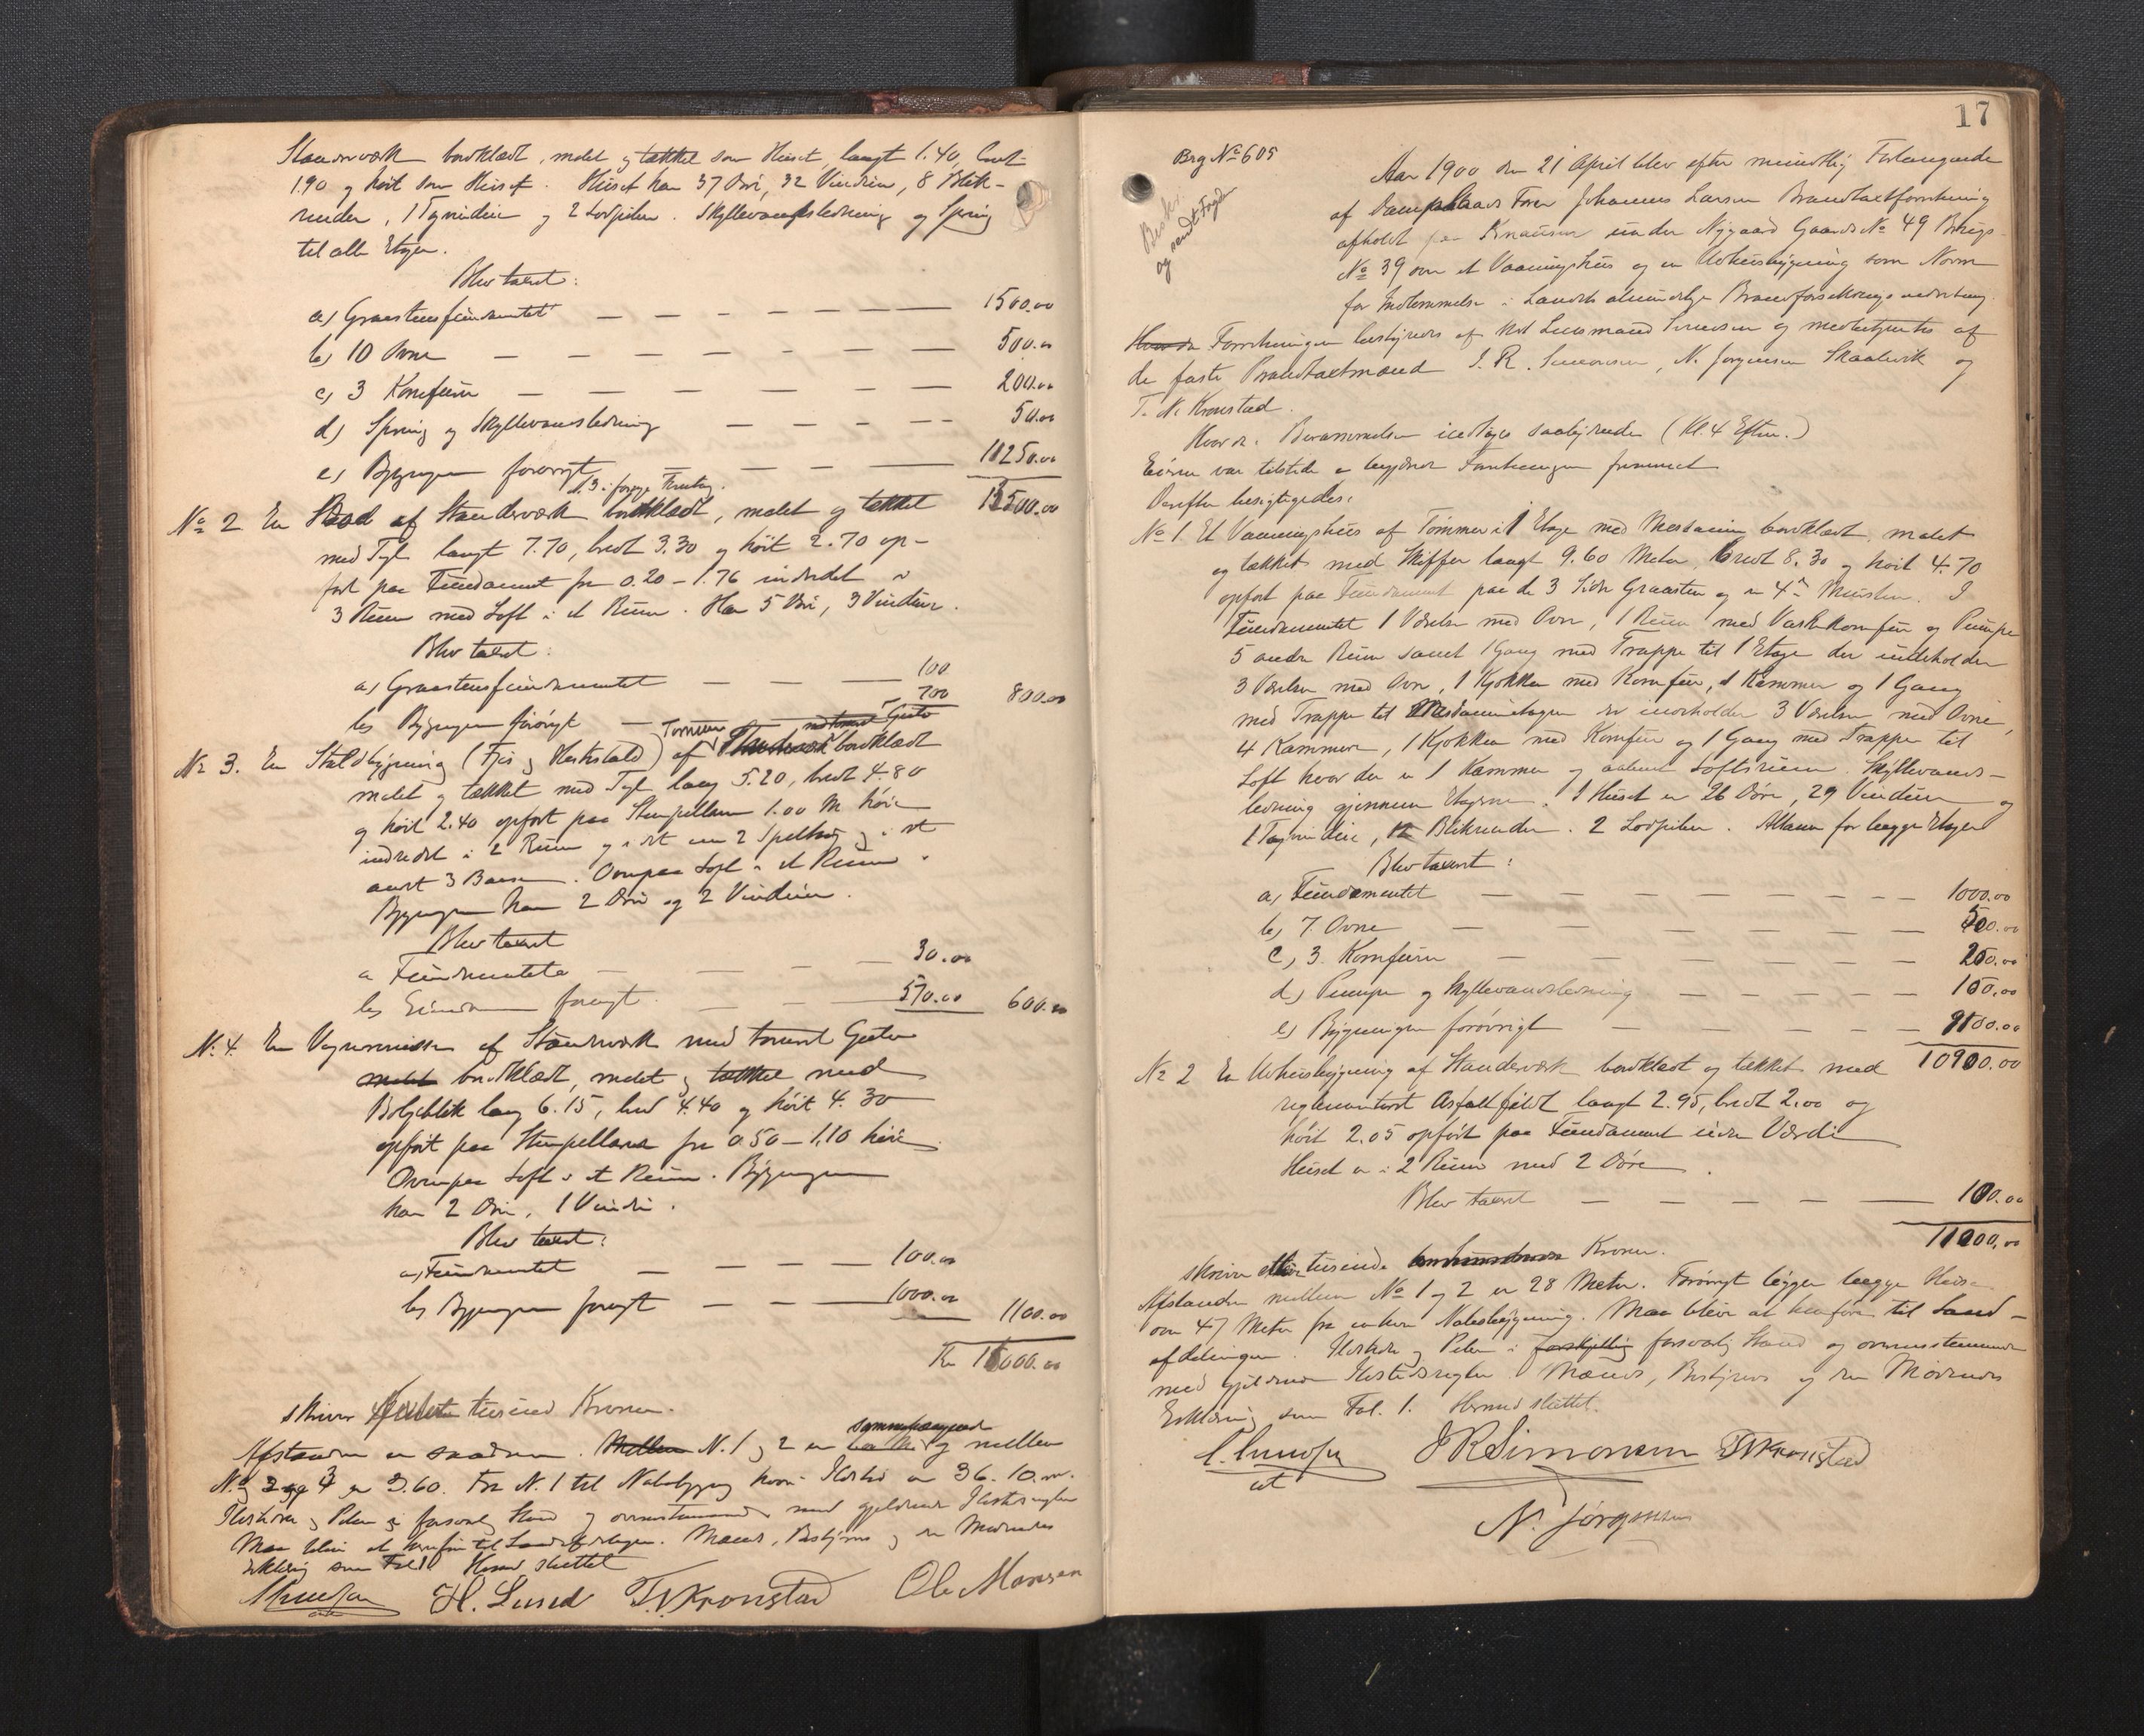 Standerværk bordklædt, malet og tækket som Huset, langt 1.40, bredt
1.90 og höit som Huset. Huset har 37 Döre, 32 Vinduer, 8 Blik-
render, 1 Tagvindue og 2 Lodpiber. Skyllevandsledning og Spring
til alle Etager.
Blev taxert:
a) Graastensfundamentet — 1500.00
b) 10 Ovne — 500.00
c) 3 Komfurer — 200.00
d) Spring og Skyllevandsledning — 50.00
e) Bygningen forøvrigt —
500.00
No 2 En Bod af Standerværk bordklædt, malet og tækket
med Tagl langt 7.70, bredt 3.30 og höit 2.70 op-
fört paa Fundament fra 0.20 – 1.76 indredet i
3 Rum med Loft i et Rum. Har 5 Döre, 3 Vinduer.
Blev taxert:
a) Graastensfundamentet — 100
b) Bygningen forövrigt — 700 800.00
No 3. En Staldbygning (Fjös og Hestestald) af Tømmer bordklædt
malet og tækket med Tagl lang 5.20, bredt 4.80
og höit 2.40 opfört paa Stenpillarer 1.00 M höie
indredet i 2 Rum og i det ene 2 Spiltoug og i det
andet 3 Baase. Ovenpaa Loft i et Rum.
Bygningen har 2 Döre og 2 Vinduer.
Blev taxert
a Fundamentet — 30.00
b) forøvrigt — 570.00 600.00
No 4. En Vognremisse af Standerværk med tömret
malet bordklædt, malet og tækket med
Bölgeblik lang 6.15, bred 4.40 og höit 4.30
opfört paa Stenpillarer fra 0.50 – 1.10 höie
Ovenpaa Loft i et Rum. Bygningen
har 2 Döre, 1 Vindue.
Blev taxert:
a) Fundamentet — 100.00
b) Bygningen forøvrigt — 1000.00 1100.00
Kr
skriver tusind Kroner.
Afstanden er saadan. Mellem N. 1 og 2 er sammenhængende og mellem
No 3 og 4 er 3.60. Fra N. 1 til Nabobygning hvori Ildsted er 36.10 m.
Ildsteder og Piber i forsvarlig Stand og overensstemmende med gjeldende Ildstedsregler
Maa blive at henføre til Landafdelingen. Mænds, Bestyrers og de Mødendes
Erklæring som Fol 1 Hermed sluttet
H. Lund T. N. Kronstad Ole Monsen
17
Brg No 605
Beskr.
og sendt Fogden
Aar 1900 den 21 April blev efter mundtlig Forlangende
af Dampskibsförer Johannes Larsen Brandtaxtforretning
afholdt paa under Nygaard Gaards No 49 Brugs-
No 39 over et Vaaningshus og en Udhusbygning som Norm
for Indlemmelse i Landets almindelige Brandforsikrings indretning.
Hvorda Forretningen bestyredes af Kst Lensmand og medbetjentes af
de faste Brandtaxtmænd J. R. Simonsen, N. Jørgensen Skaalevik og
T. N. Kronstad.
Hvorda. Berammelsen iledtoges saalydende (Kl. 4 Efterm.)
Eieren var tilstede og begjærede Forretningen fremmet
Derefter besigtigedes:
No 1. Et Vaaningshus af Tømmer i 1 Etage med Mesanin bordklædt, malet
og tækket med Skiffer langt 9.60 Meter, bredt 8.30 og höit 4.70
opfört paa Fundament paa de 3 Sider Graasten og en 4de Mursten. I
Fundamentet 1 Værelse med Ovn, 1 Rum med Vaskekomfur og Pumpe
5 andre Rum samt 1 Gang med Trappe til 1 Etage der indeholder
3 Værelser med Ovne, 1 Kjøkken med Komfur, 1 Kammer og 1 Gang
med Trappe til Mesaninetagen der indeholder 3 Værelser med Ovne,
4 Kammere, 1 Kjøkken med Komfur og 1 Gang med Trappe til
Loft hvor der er 1 Kammer og aabent Loftsrum. Skyllevands-
ledning gjennem Etagerne. I Huset er 26 Döre, 29 Vinduer og
1 Tagvindue, 12 Blikrender. 2 Lodpiber. Altaner for begge Etager
Blev taxert:
a) Fundamentet — 1000.00
b) 7 Ovne — 500.00
c) 3 Komfurer — 200.00
d) Pumpe og Skyllevandsledning — 100.00
e) Bygningen forövrigt — 9100.00
10900.00
No 2 En Udhusbygning af Standerværk bordklædt og tækket med
reglementert Asfaltfildt langt 2.95, bredt 2.00 og
höit 2.05 opfört paa Fundament uden Værdi
Huset er i 2 Rum med 2 Döre.
Blev taxert — 100.00
11000.00
skriver elleve tusinde Kroner.
Afstanden mellem No 1 og 2 er 28 Meter. Forövrigt ligger begge Huse
over 47 Meter fra enhver Nabobebygning. Maa blive at henføre til Land-
afdelingen. Ildsteder og Piber i forskjellig forsvarlig Stand og overensstemmende
med gjeldende Ildstedsregler. Mænds, Bestyrers og de Mødendes
Erklæring som Fol. 1. Hermed sluttet.
J R Simonsen T N Kronstad
cst
N. Jørgensen